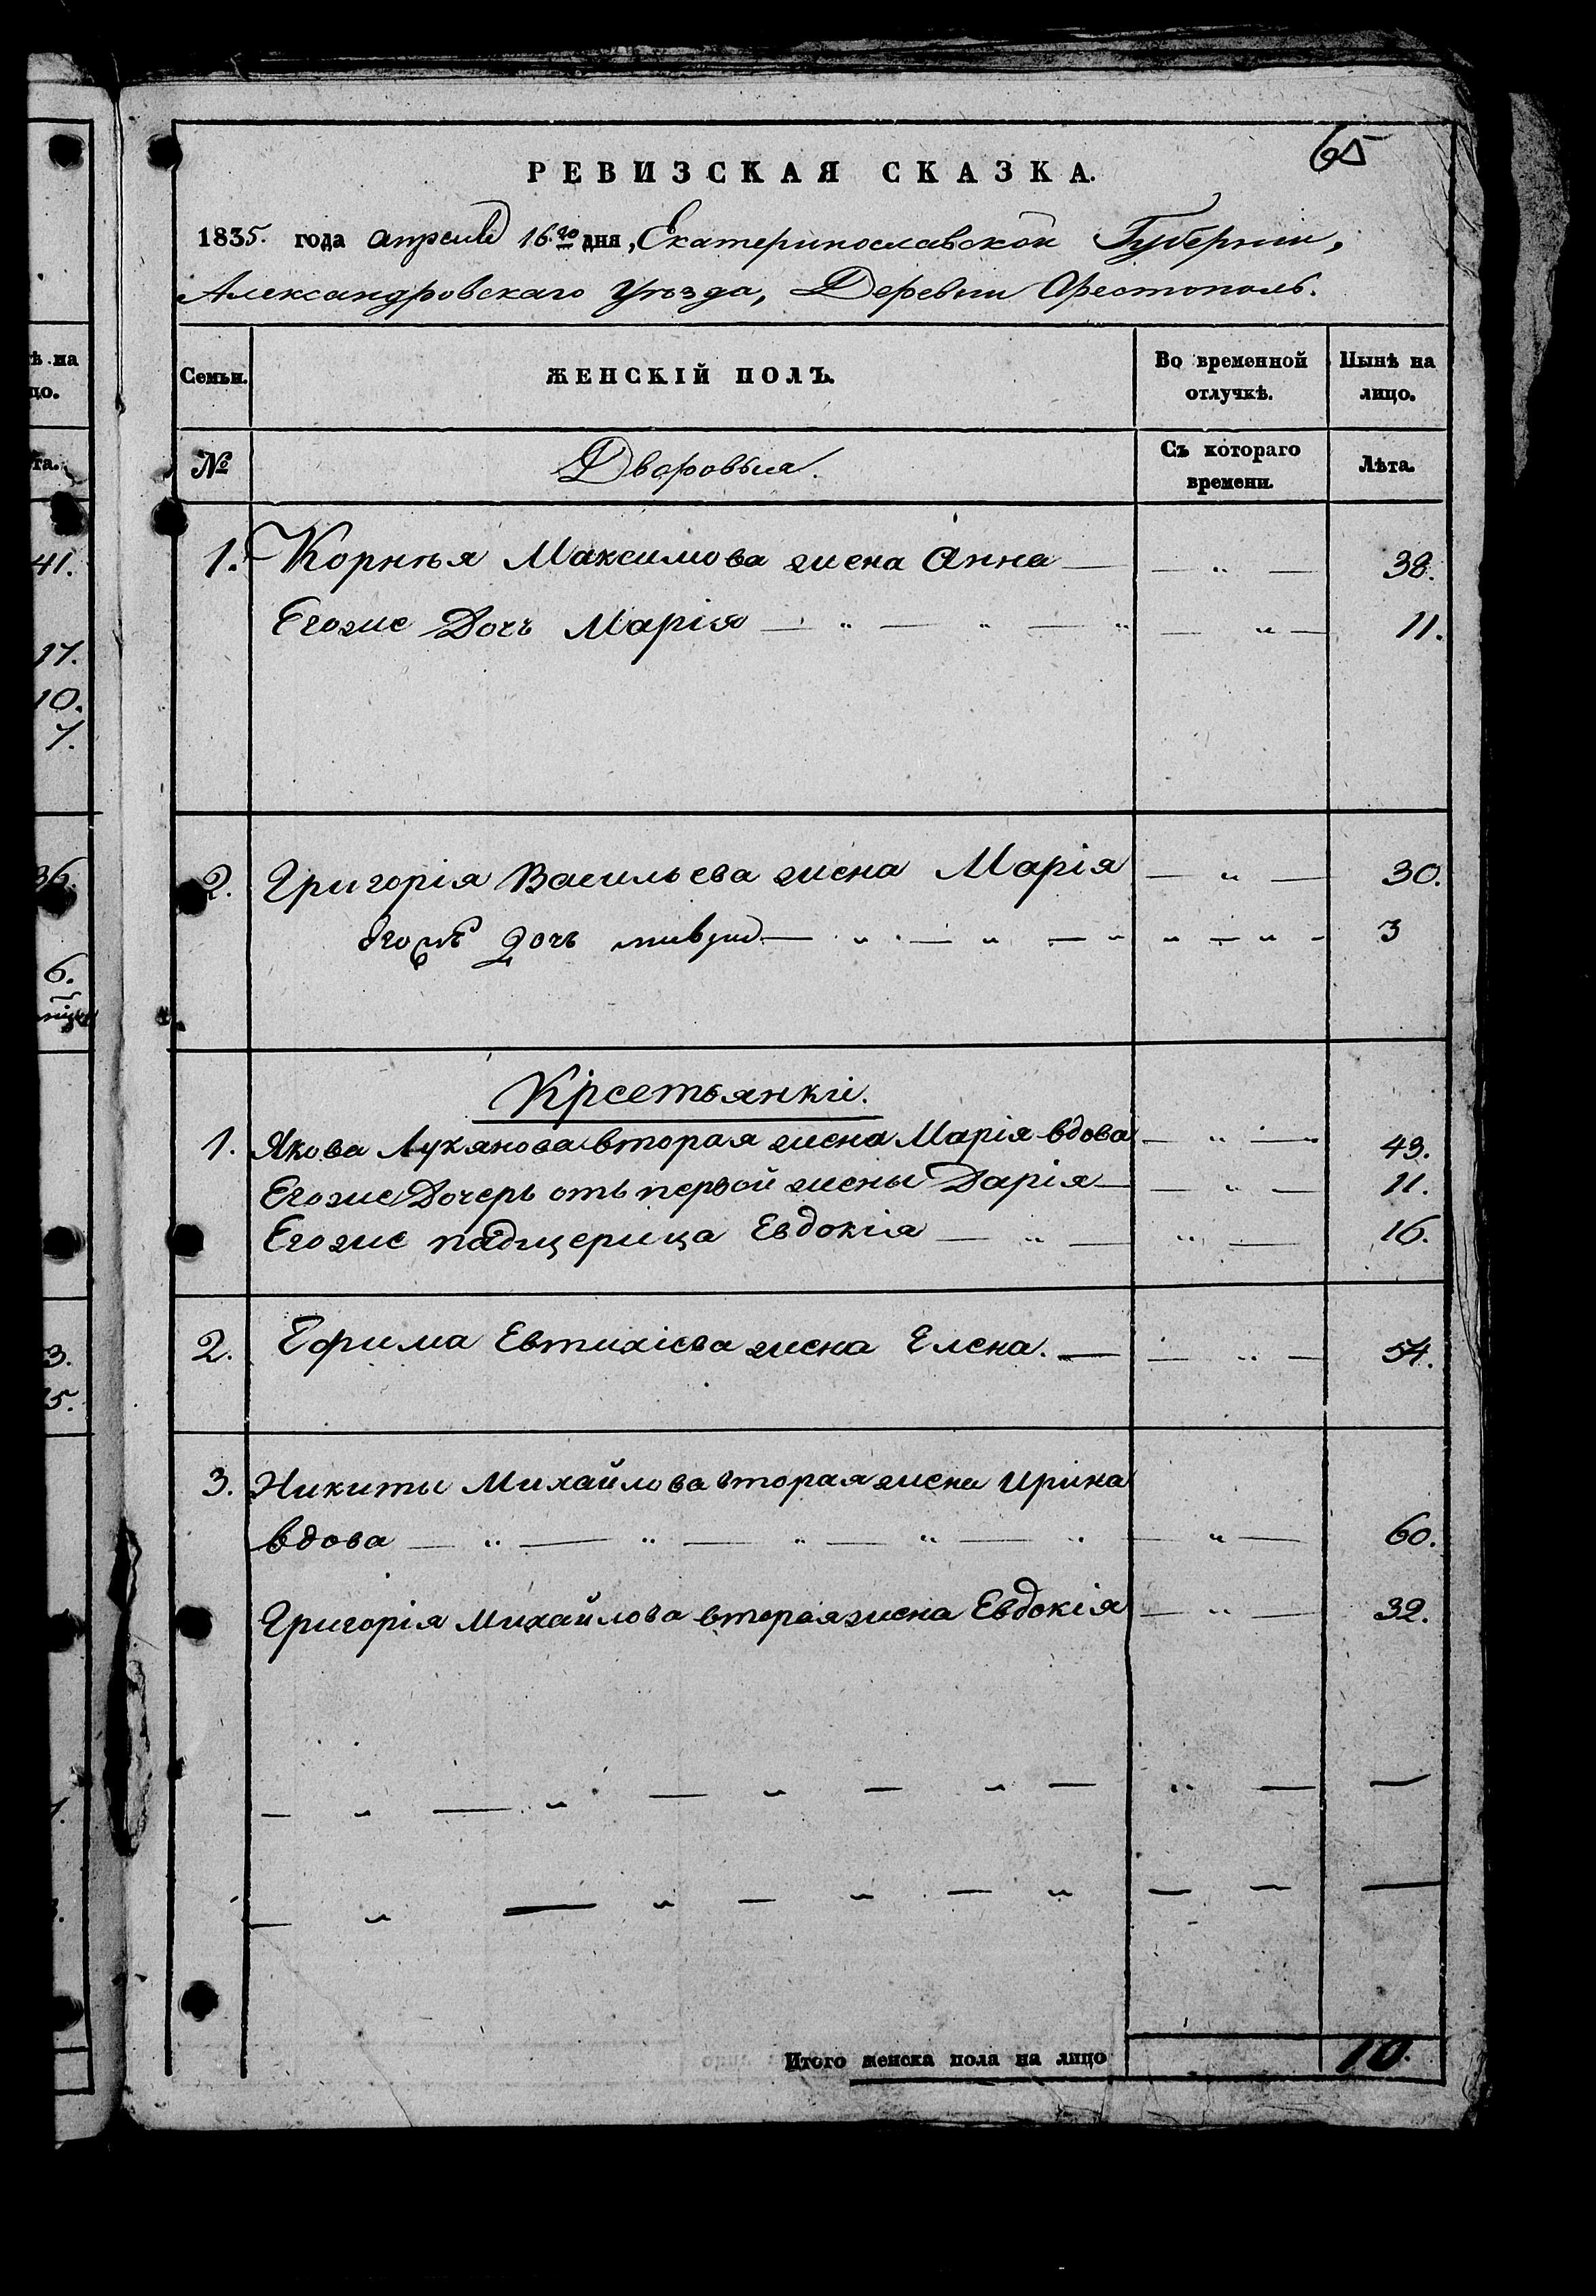 ѣ на
цо.
та.
41.
17.
10.
7.
36.
6.
3.
15.
65
РЕВИЗСКАЯ СКАЗКА.
1835. года апреля 16го дня, Екатеринославской Губернии,
Александровскаго Уѣзда, Деревни Орестополь.
Семьи. ЖЕНСКІЙ ПОЛЪ. Во временной отлучкѣ. Нынѣ на лицо.
№ Дворовыя. Съ котораго времени. Лѣта.
1. Корнѣя Максимова жена Анна — „ — 38.
Егоже Дочь Марія — „ — „ — „ — „ — 11.
2. Григорія Васильева жена Марія — „ — 30.
дочь — „ — „ — „ „ — „ - 3
Крестьянки.
1. Якова Лукянова вторая жена Марія вдова — „ — 43.
Егоже Дочерь отъ первой жены Дарія — — „ — 11.
Егоже падщерица Евдокія — „ — „ — 16.
2. Ефима Евтихіева жена Елена. — — „ — 54.
3. Никиты Михайлова вторая жена Ирина
вдова — „ — „ — „ — „ — „ — „ — 60.
Григорія Михайлова вторая жена Евдокія — „ — 32.
— „ — „ — „ — „ — „ — —
— „ — „ — „ — „ — — —
Итого женска пола на лицо 10.